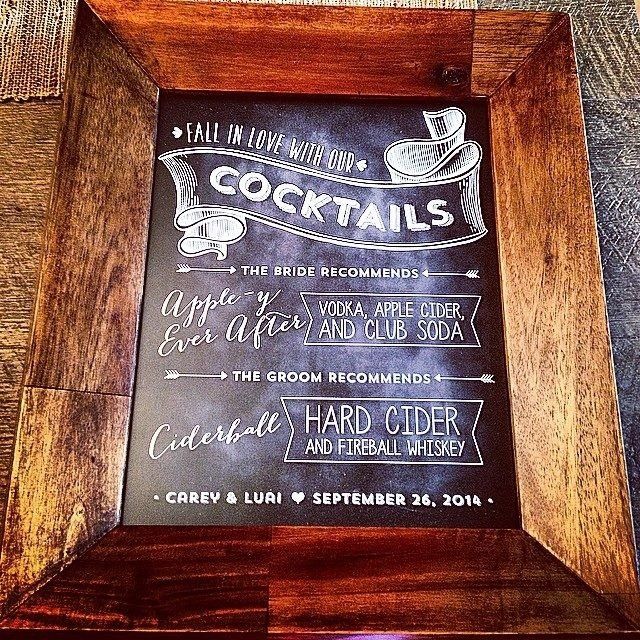 FALL IN LOVE WITH OUR
COCKTAILS
THE BRIDE RECOMMENDS
Apple-y
Ever After
VODKA, APPLE CIDER,
AND CLUB SODA
THE GROOM RECOMMENDS
Ciderball
HARD CIDER
AND FIREBALL WHISKEY
• CAREY & LUAI ♥ SEPTEMBER 26, 2014 •